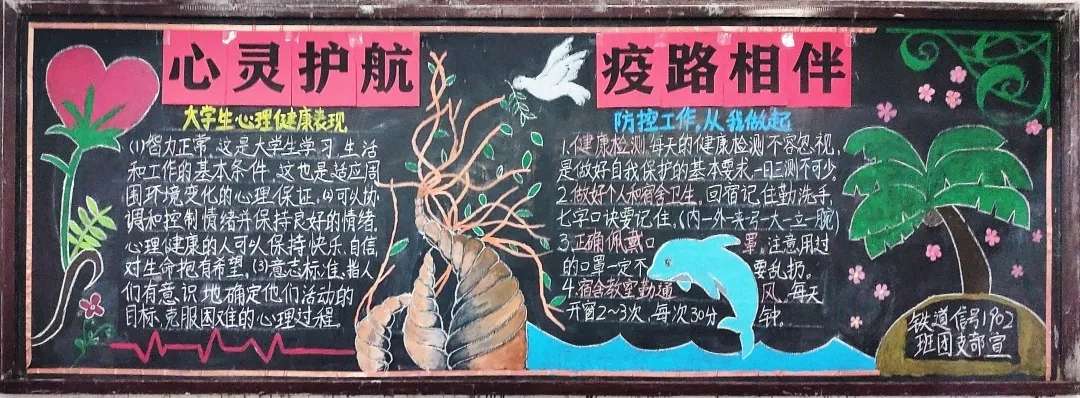 心灵护航
大学生心理健康表现
(1)智力正常,这是大学生学习、生活
和工作的基本条件,这也是适应周
围环境变化的心理保证,(2)可以协
调和控制情绪并保持良好的情绪,
心理健康的人可以保持快乐、自信,
对生命抱有希望,(3)意志标准,指人
们有意识地确定他们活动的
目标,克服困难的心理过程。
疫路相伴
防控工作,从我做起
1.健康检测,每天的健康检测不容忽视,
是做好自我保护的基本要求,一日三测不可少。
2.做好个人和宿舍卫生,回宿记住勤洗手,
七字口诀要记住,(内一外一夹弓一大一立一腕)
3.正确佩戴口罩,注意用过
的口罩一定不要乱扔。
4.宿舍教室勤通风,每天
开窗2~3次,每次30分钟。
铁道信号1902
班团支部宣